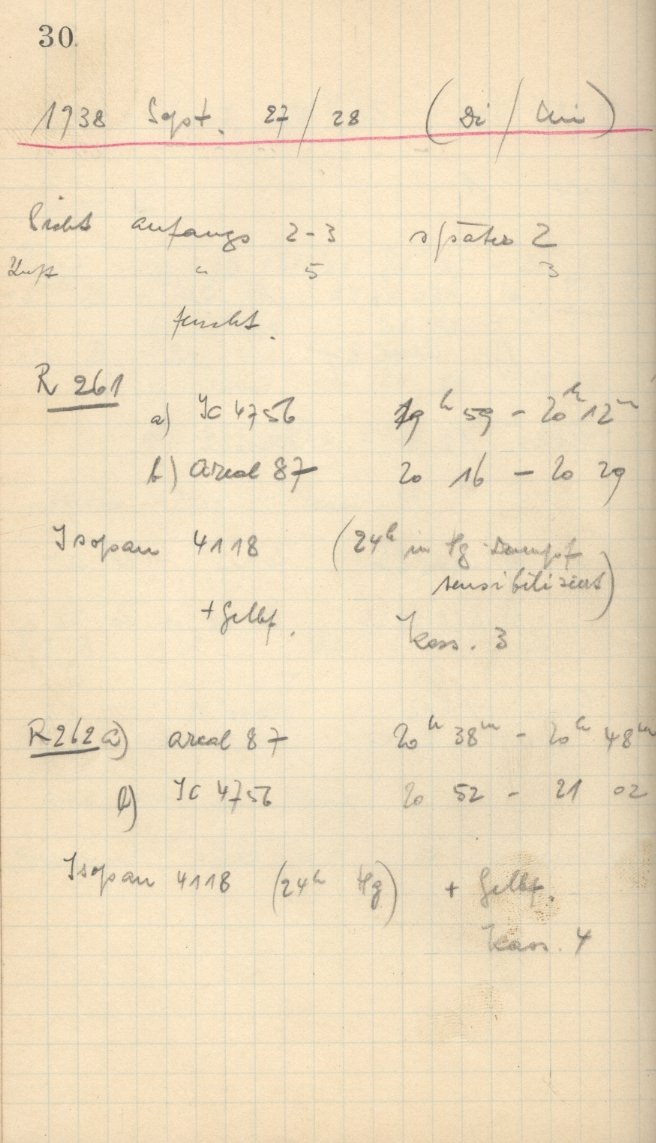 30.
1938 Sept. 27/28 (Di/Mi)
Sicht anfangs 2-3 später 2
Luft " 5 3
feucht.
R 261
a) IC 4756 19h 59 - 20h 12m
b) Areal 87 20 16 - 20 29
Isopan 4118 (24h in Hg-Dampf
sensibilisiert)
+ Gelbf.
Kass. 3
R262 a) Areal 87 20h 38m - 20h 48m
b) IC 4756 20 52 - 21 02
Isopan 4118 (24h Hg) + Gelbf.
Kass. 4